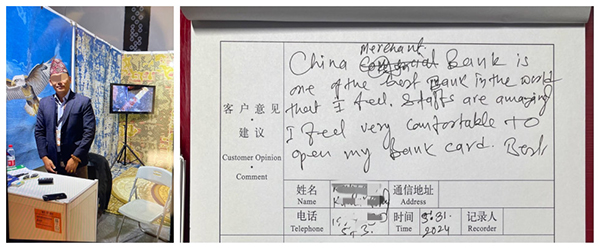 Merchant
China Bank is
one of the best Bank in the world
that I feel. Staffs are amazing
I feel very comfortable to
open my Bank card. Best
客户意见
·
建议
Customer Opinion
·
Comment
姓名
Name
通信地址
Address
电话
Telephone
时间
Time
5.31.
2024
记录人
Recorder